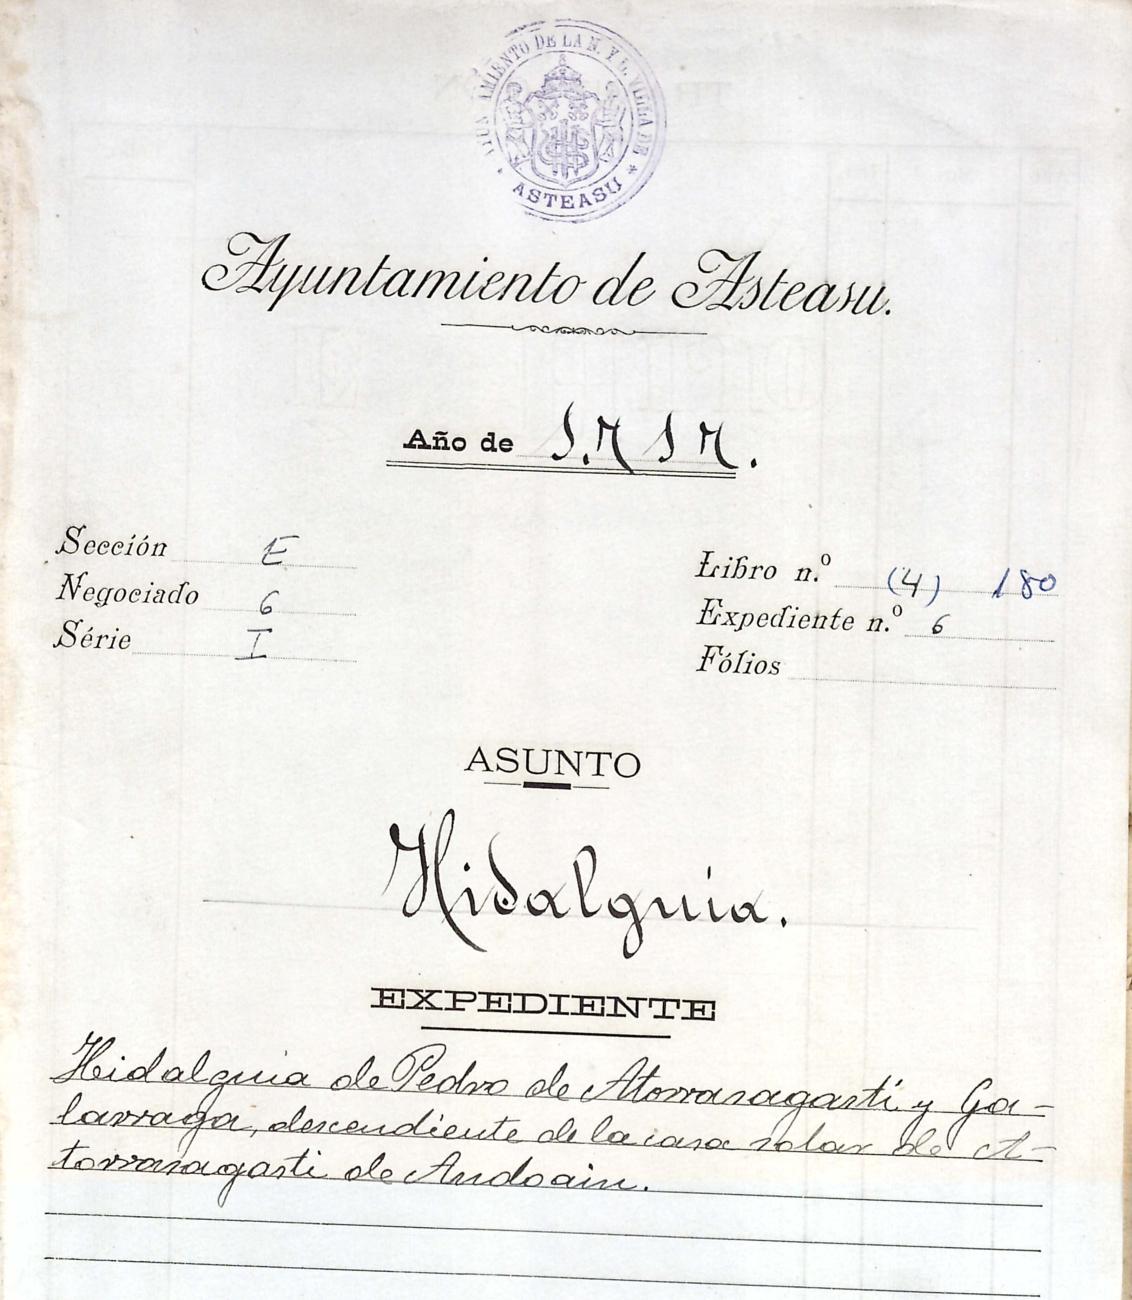 AYUNTAMIENTO DE LA N. Y L. VILLA DE
* ASTEASU *
Ayuntamiento de Asteasu.
Año de 1.717.
Sección E
Negociado 6
Série I
Libro n.º (4) 180
Expediente n.º 6
Fólios
ASUNTO
Hidalguia.
EXPEDIENTE
Hidalguia de Pedro de Atorrasagasti y Ga-
larraga, descendiente de la casa solar de A-
torrasagasti de Andoain.